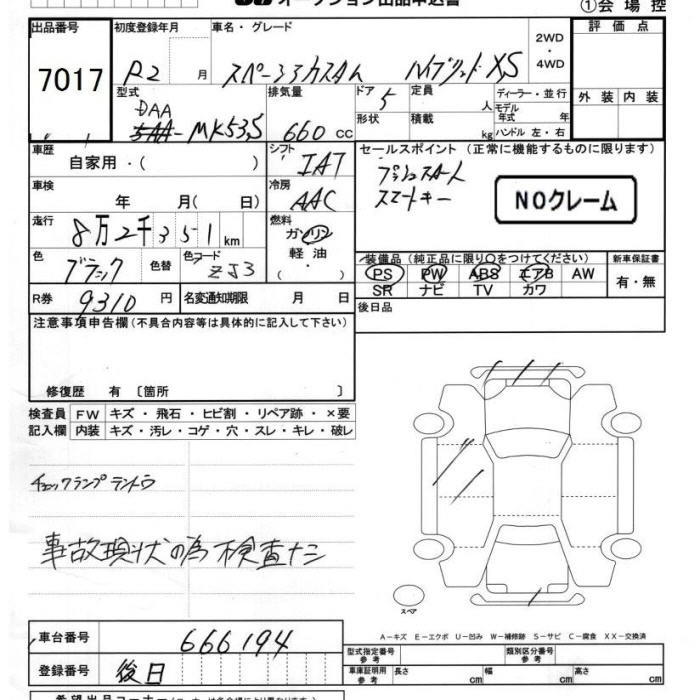 ①会 場 控
出品番号 初度登録年月 車名・グレード 2WD ・ 4WD 評 価 点
7017 R2 月 スペーシアカスタム ハイブリッドXS
型式 排気量 ドア 定員 ディーラー・並行 外 装 内 装
DAA
5AA-MK53S 660 CC 5 人 モデル年式 年
形状 積載 kg ハンドル 左・右
車歴 シフト セールスポイント (正常に機能するものに限ります)
自家用・( ) IAT プッシュスタート
車検 冷房 スマートキー NOクレーム
年 月( 日) AAC
走行 燃料
8万2千351km ガソリン
色 色替 色コード 軽 油 装備品 (純正品に限り○をつけてください) 新車保証書
ブラック ZJ3 ・ PS PW ABS エアB AW 有・無
SR ナビ TV カワ
R券 9310 円 名変通知期限 月 日 後日品
注意事項申告欄(不具合内容等は具体的に記入して下さい)
修復歴 有 〔箇所 〕
検査員 FW キズ・飛石・ヒビ割・リペア跡・×要
記入欄 内装 キズ・汚レ・コゲ・穴・スレ・キレ・破レ
チェックランプテントウ
事故現状の為検査ナシ
スペア
A-キズ E-エクボ U-凹み W-補修跡 S-サビ C-腐食 XX-交換済
車台番号 666194 型式指定番号 参考 類別区分番号 参考
登録番号 後日 車庫証明用 参考 長さ cm 幅 cm 高さ cm